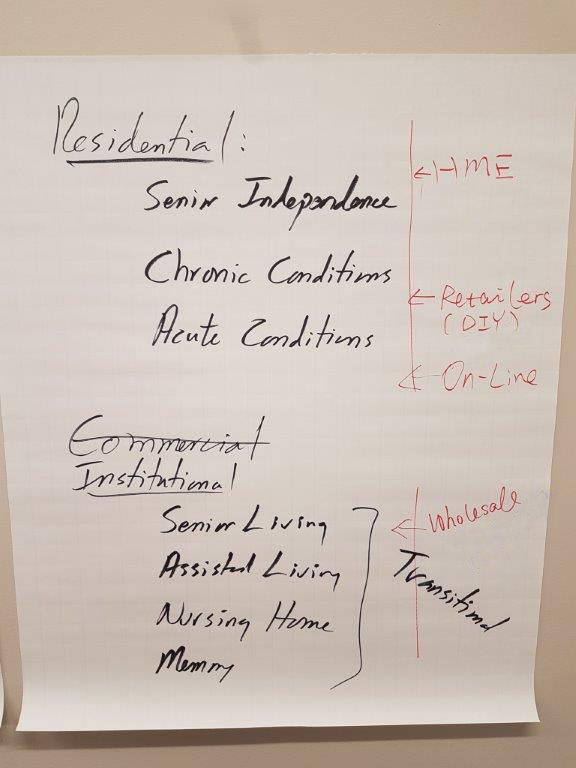 Residential:
Senior Independence
← HME
Chronic Conditions
← Retailers
(DIY)
Acute Conditions
← On-Line
Commercial
Institutional
Senior Living
← Wholesale
Assisted Living
Transitional
Nursing Home
Memory